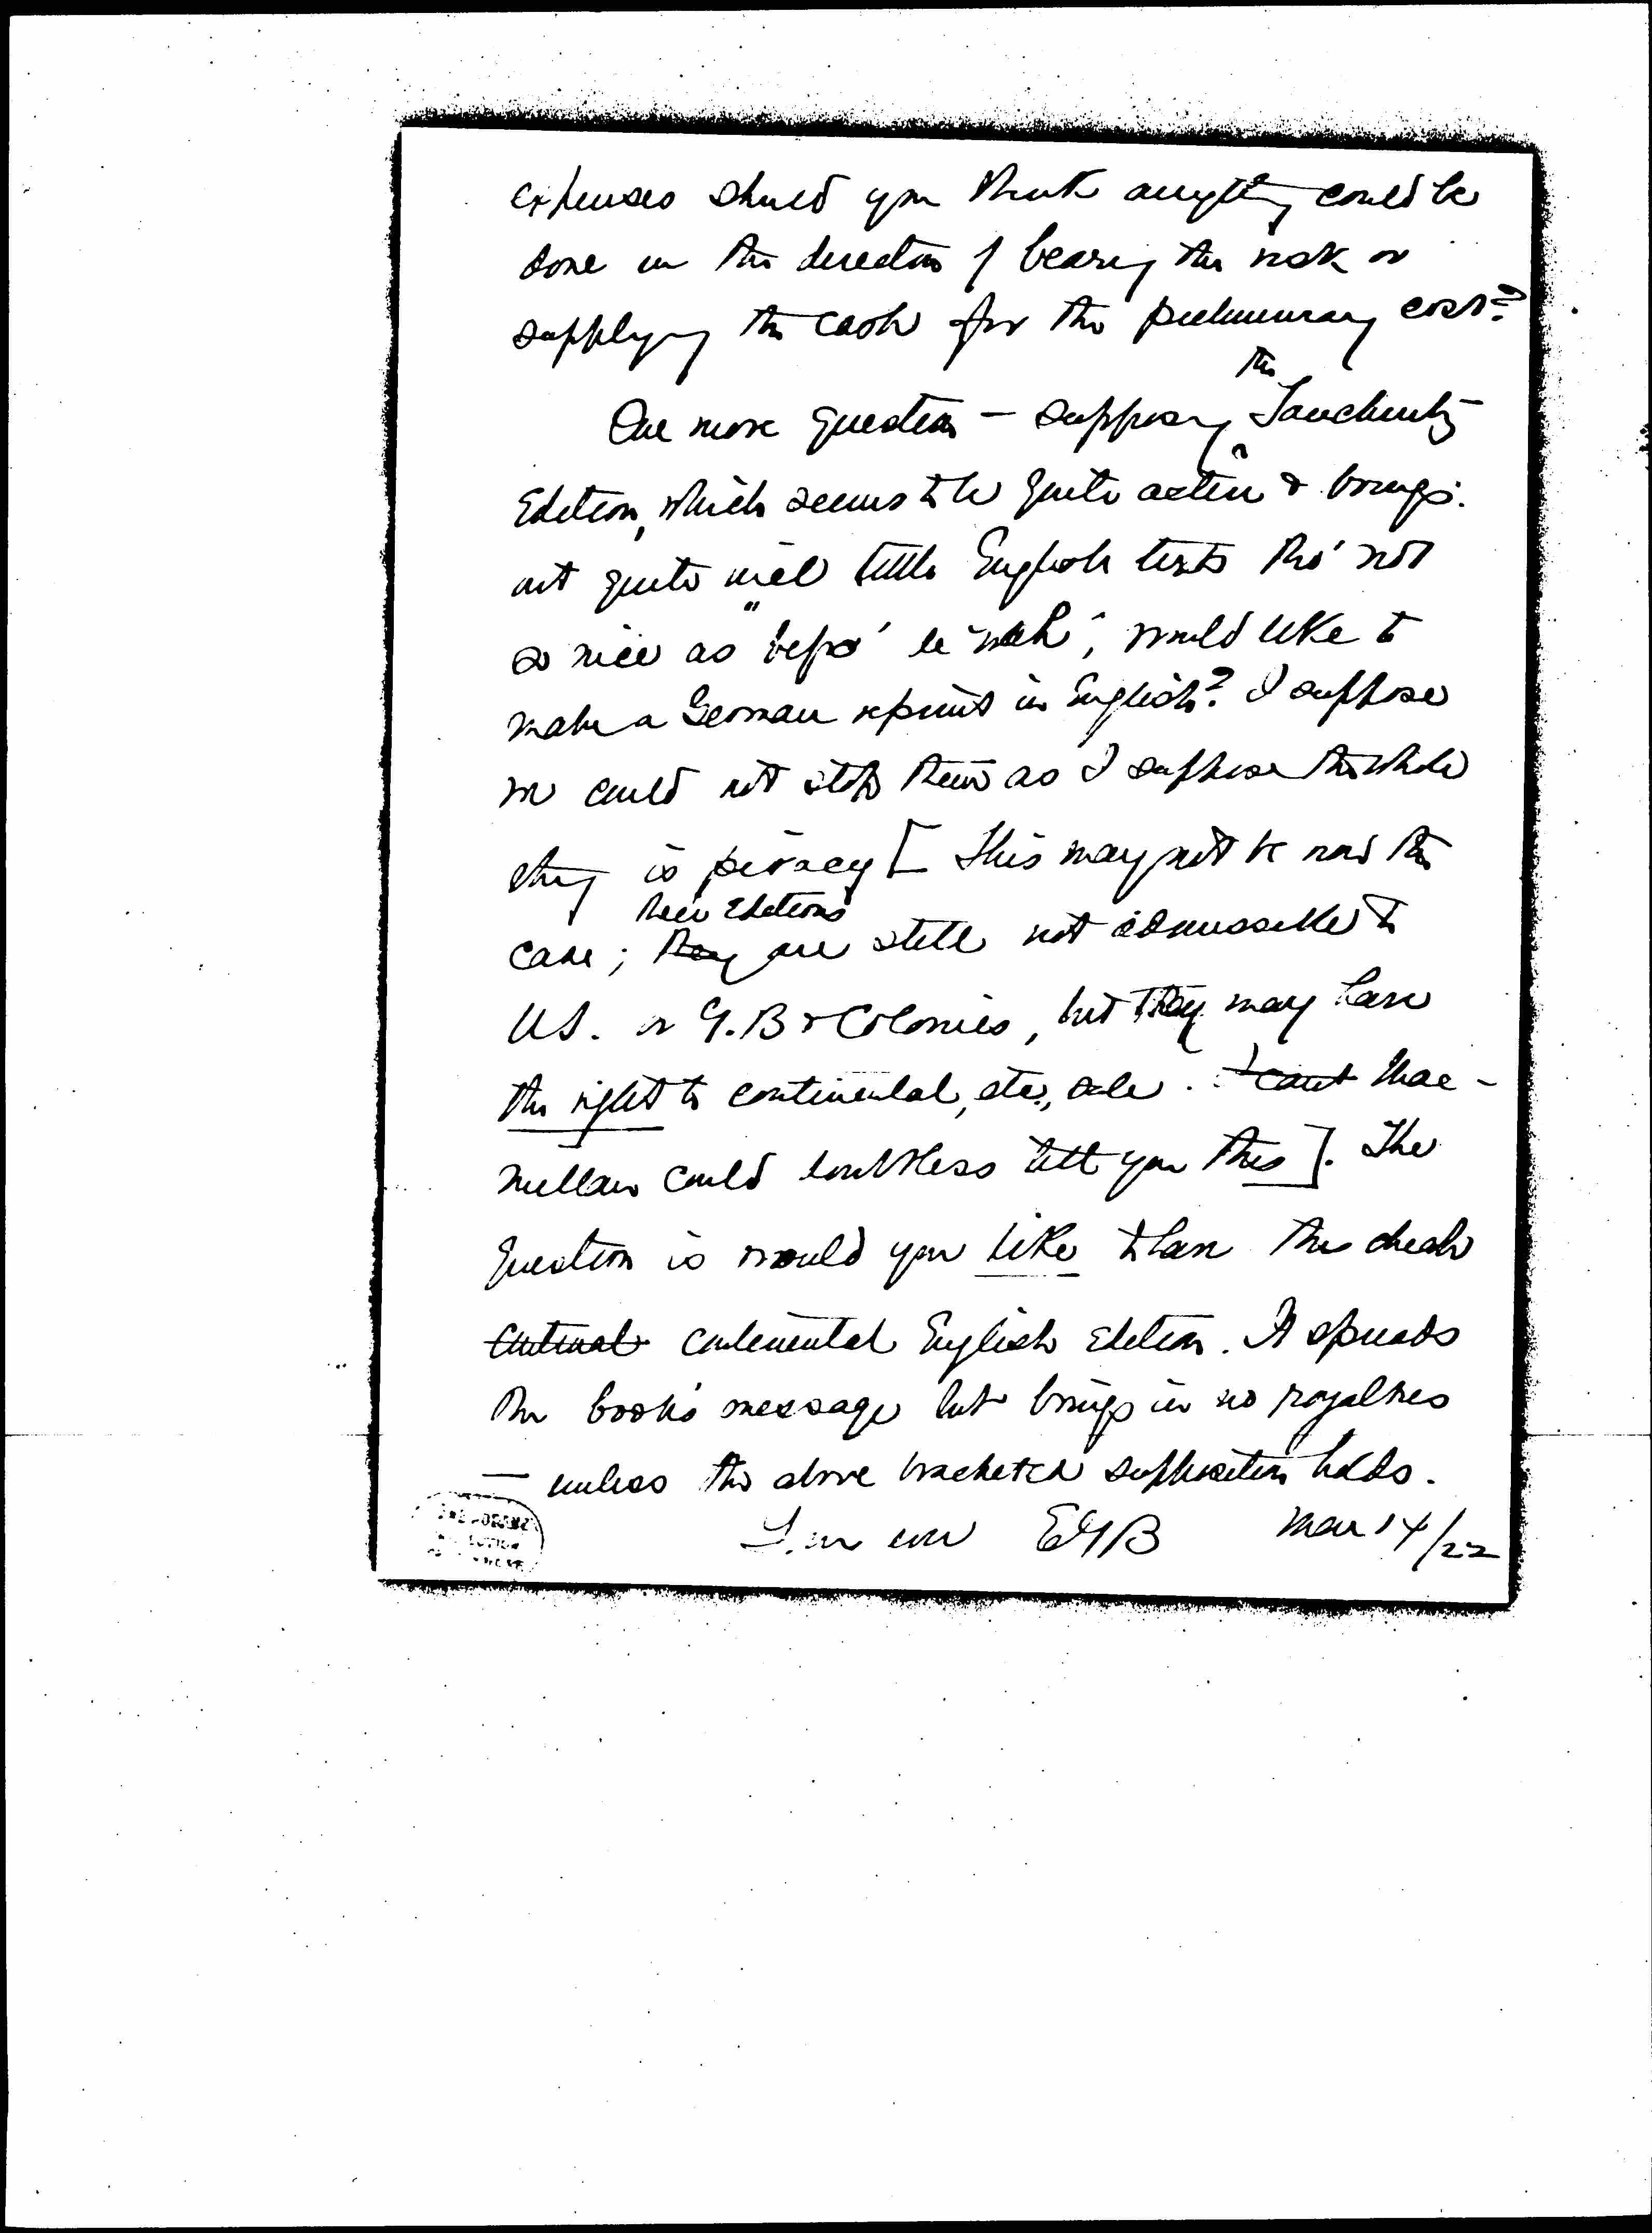 expenses should you think anything could be
done in the direction of bearing the risk or
supplying the cash for the preliminary cost?
the
One more question — supposing Tauchnitz
Edition, which seems to be quite active & brings
out quite nice little English texts tho' not
so nice as befo' le , would like to
make a German reprint in English? I suppose
we could not stop them as I suppose the whole
thing is piracy [ This may not be now the
their Editions
case; they are still not admissable to
US. or G.B & Colonies, but they may have
the right to continental, etc., sale. I cant Mac-
millan could doubtless tell you this ]. The
question is would you like to have this cheap
continental English Edition. It spreads
the book's message but brings in no royalties
— unless the above bracketed supposition holds.
EGB Mar 14/22